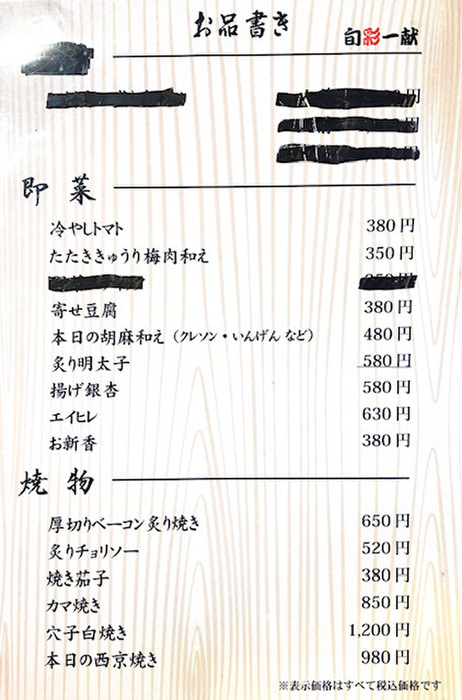 お品書き
旬彩一献
円
即菜
冷やしトマト 380円
たたききゅうり梅肉和え 350円
寄せ豆腐 380円
本日の胡麻和え（クレソン・いんげん など） 480円
炙り明太子 580円
揚げ銀杏 580円
エイヒレ 630円
お新香 380円
焼物
厚切りベーコン炙り焼き 650円
炙りチョリソー 520円
焼き茄子 380円
カマ焼き 850円
穴子白焼き 1,200円
本日の西京焼き 980円
※表示価格はすべて税込価格です